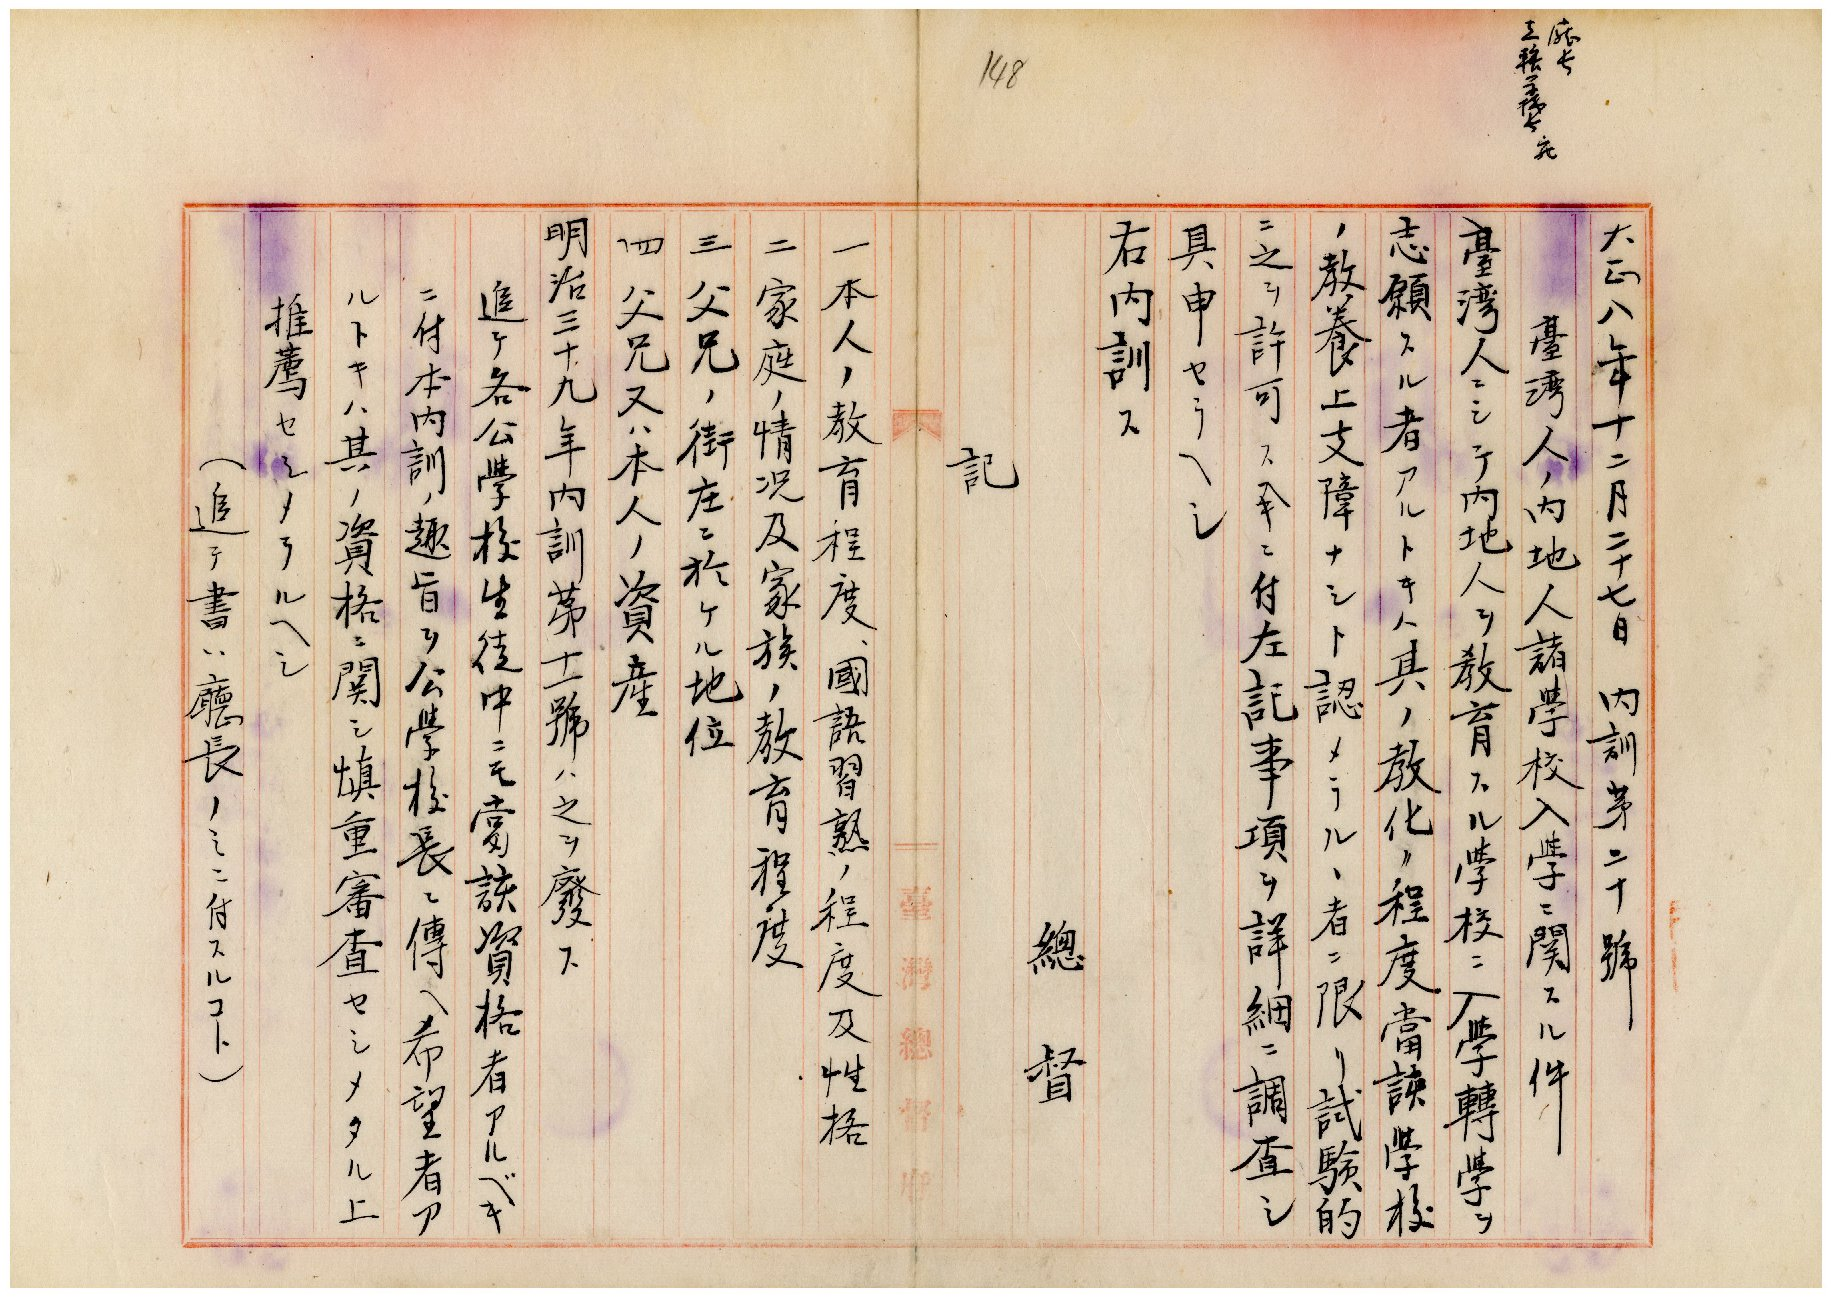 148
大正八年十二月二十七日 内訓第二十號
臺湾人ノ内地人諸學校入學ニ関スル件
臺湾人ニシテ内地人ヲ教育スル學校ニ入學轉學ヲ
志願スル者アルトキハ其ノ教化ノ程度當該學校
ノ教養上支障ナシト認メラルヽ者ニ限リ試験的
ニ之ヲ許可ス 付左記事項ヲ詳細ニ調査シ
具申セラヘシ
右内訓ス
總督
記
一 本人ノ教育程度、國語習熟ノ程度及性格
二 家庭ノ情況及家族ノ教育程度
三 父兄ノ街庄ニ於ケル地位
四 父兄又ハ本人ノ資産
明治三十九年内訓第十一號ハ之ヲ廢ス
追テ各公學校生徒中ニモ當該資格者アルベキ
ニ付本内訓ノ趣旨ヲ公學校長ニ傳ヘ希望者ア
ルトキハ其ノ資格ニ関シ慎重審査セシメタル上
推薦セシメラルヘシ
（追テ書ハ廳長ノミニ付スルコト）
臺灣總督府